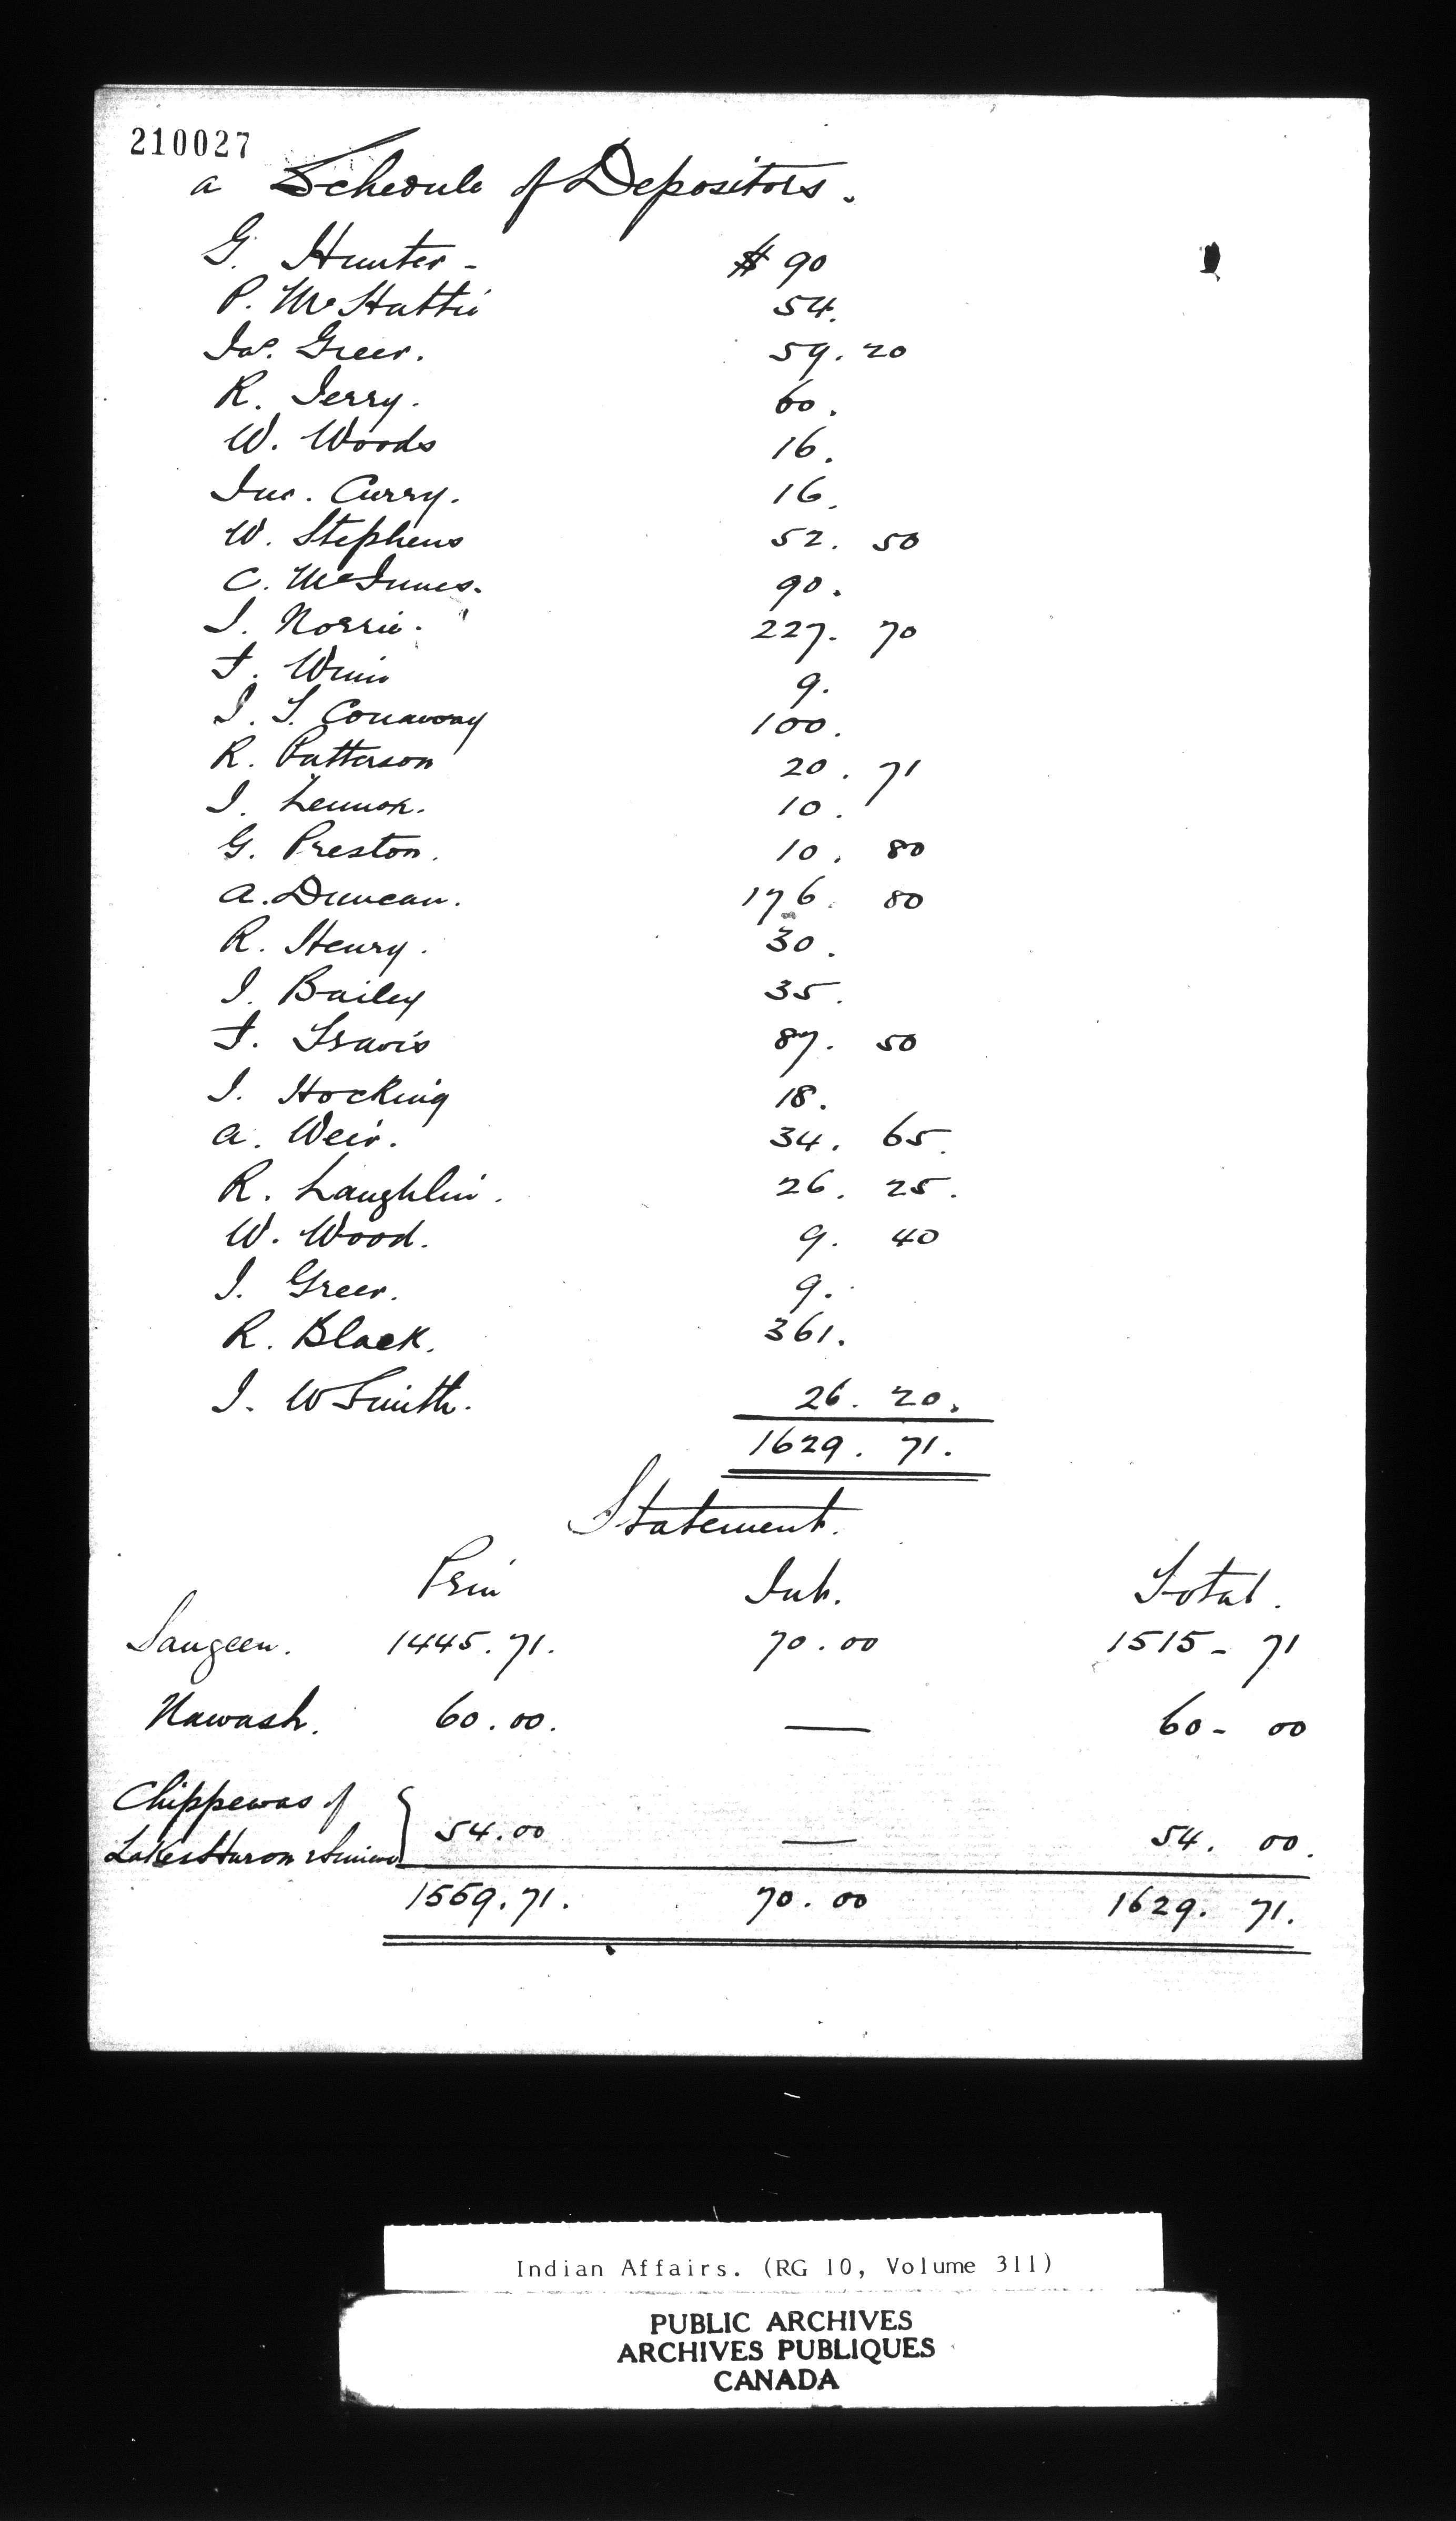 210027
a Schedule of Depositors.
G. Hunter - $ 90
P. McHattie 54.
Jas. Greer. 59. 20
R. Jerry. 60.
W. Woods 16.
Jno. Curry. 16.
W. Stephens 52. 50
C. McInnes. 90.
J. Norrie. 227. 70
F. 9.
J. S. Conaway 100.
R. Patterson 20. 71
J. Lennox. 10.
G. Preston. 10. 80
A. Duncan. 176. 80
R. Henry. 30.
J. Bailey 35.
F. Travis 87. 50
J. Hocking 18.
A. Weir. 34. 65.
R. Laughlin. 26. 25.
W. Wood. 9. 40
J. Greer. 9.
R. Black. 361.
J. W Smith. 26. 20.
1629. 71.
Statement.
Prin Int. Total.
Saugeen. 1445.71. 70.00 1515- 71
Nawash. 60.00. — 60- 00
Chippewas of
Lakes Huron & Simcoe 54.00 — 54. 00.
1559.71. 70.00 1629. 71.
Indian Affairs. (RG 10, Volume 311)
PUBLIC ARCHIVES
ARCHIVES PUBLIQUES
CANADA